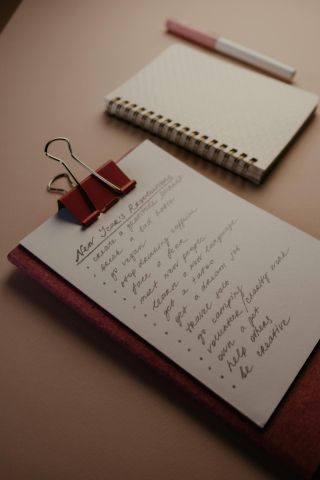 New Year's Resolutions
• create a gratitude journal
• break a bad habit
• go vegan
• stop drinking caffeine
• face a fear
• meet new people
• learn a new language
• get a tattoo
• get a dream job
• travel solo
• go camping
• volunteer/charity work
• own a pet
• help others
• be creative